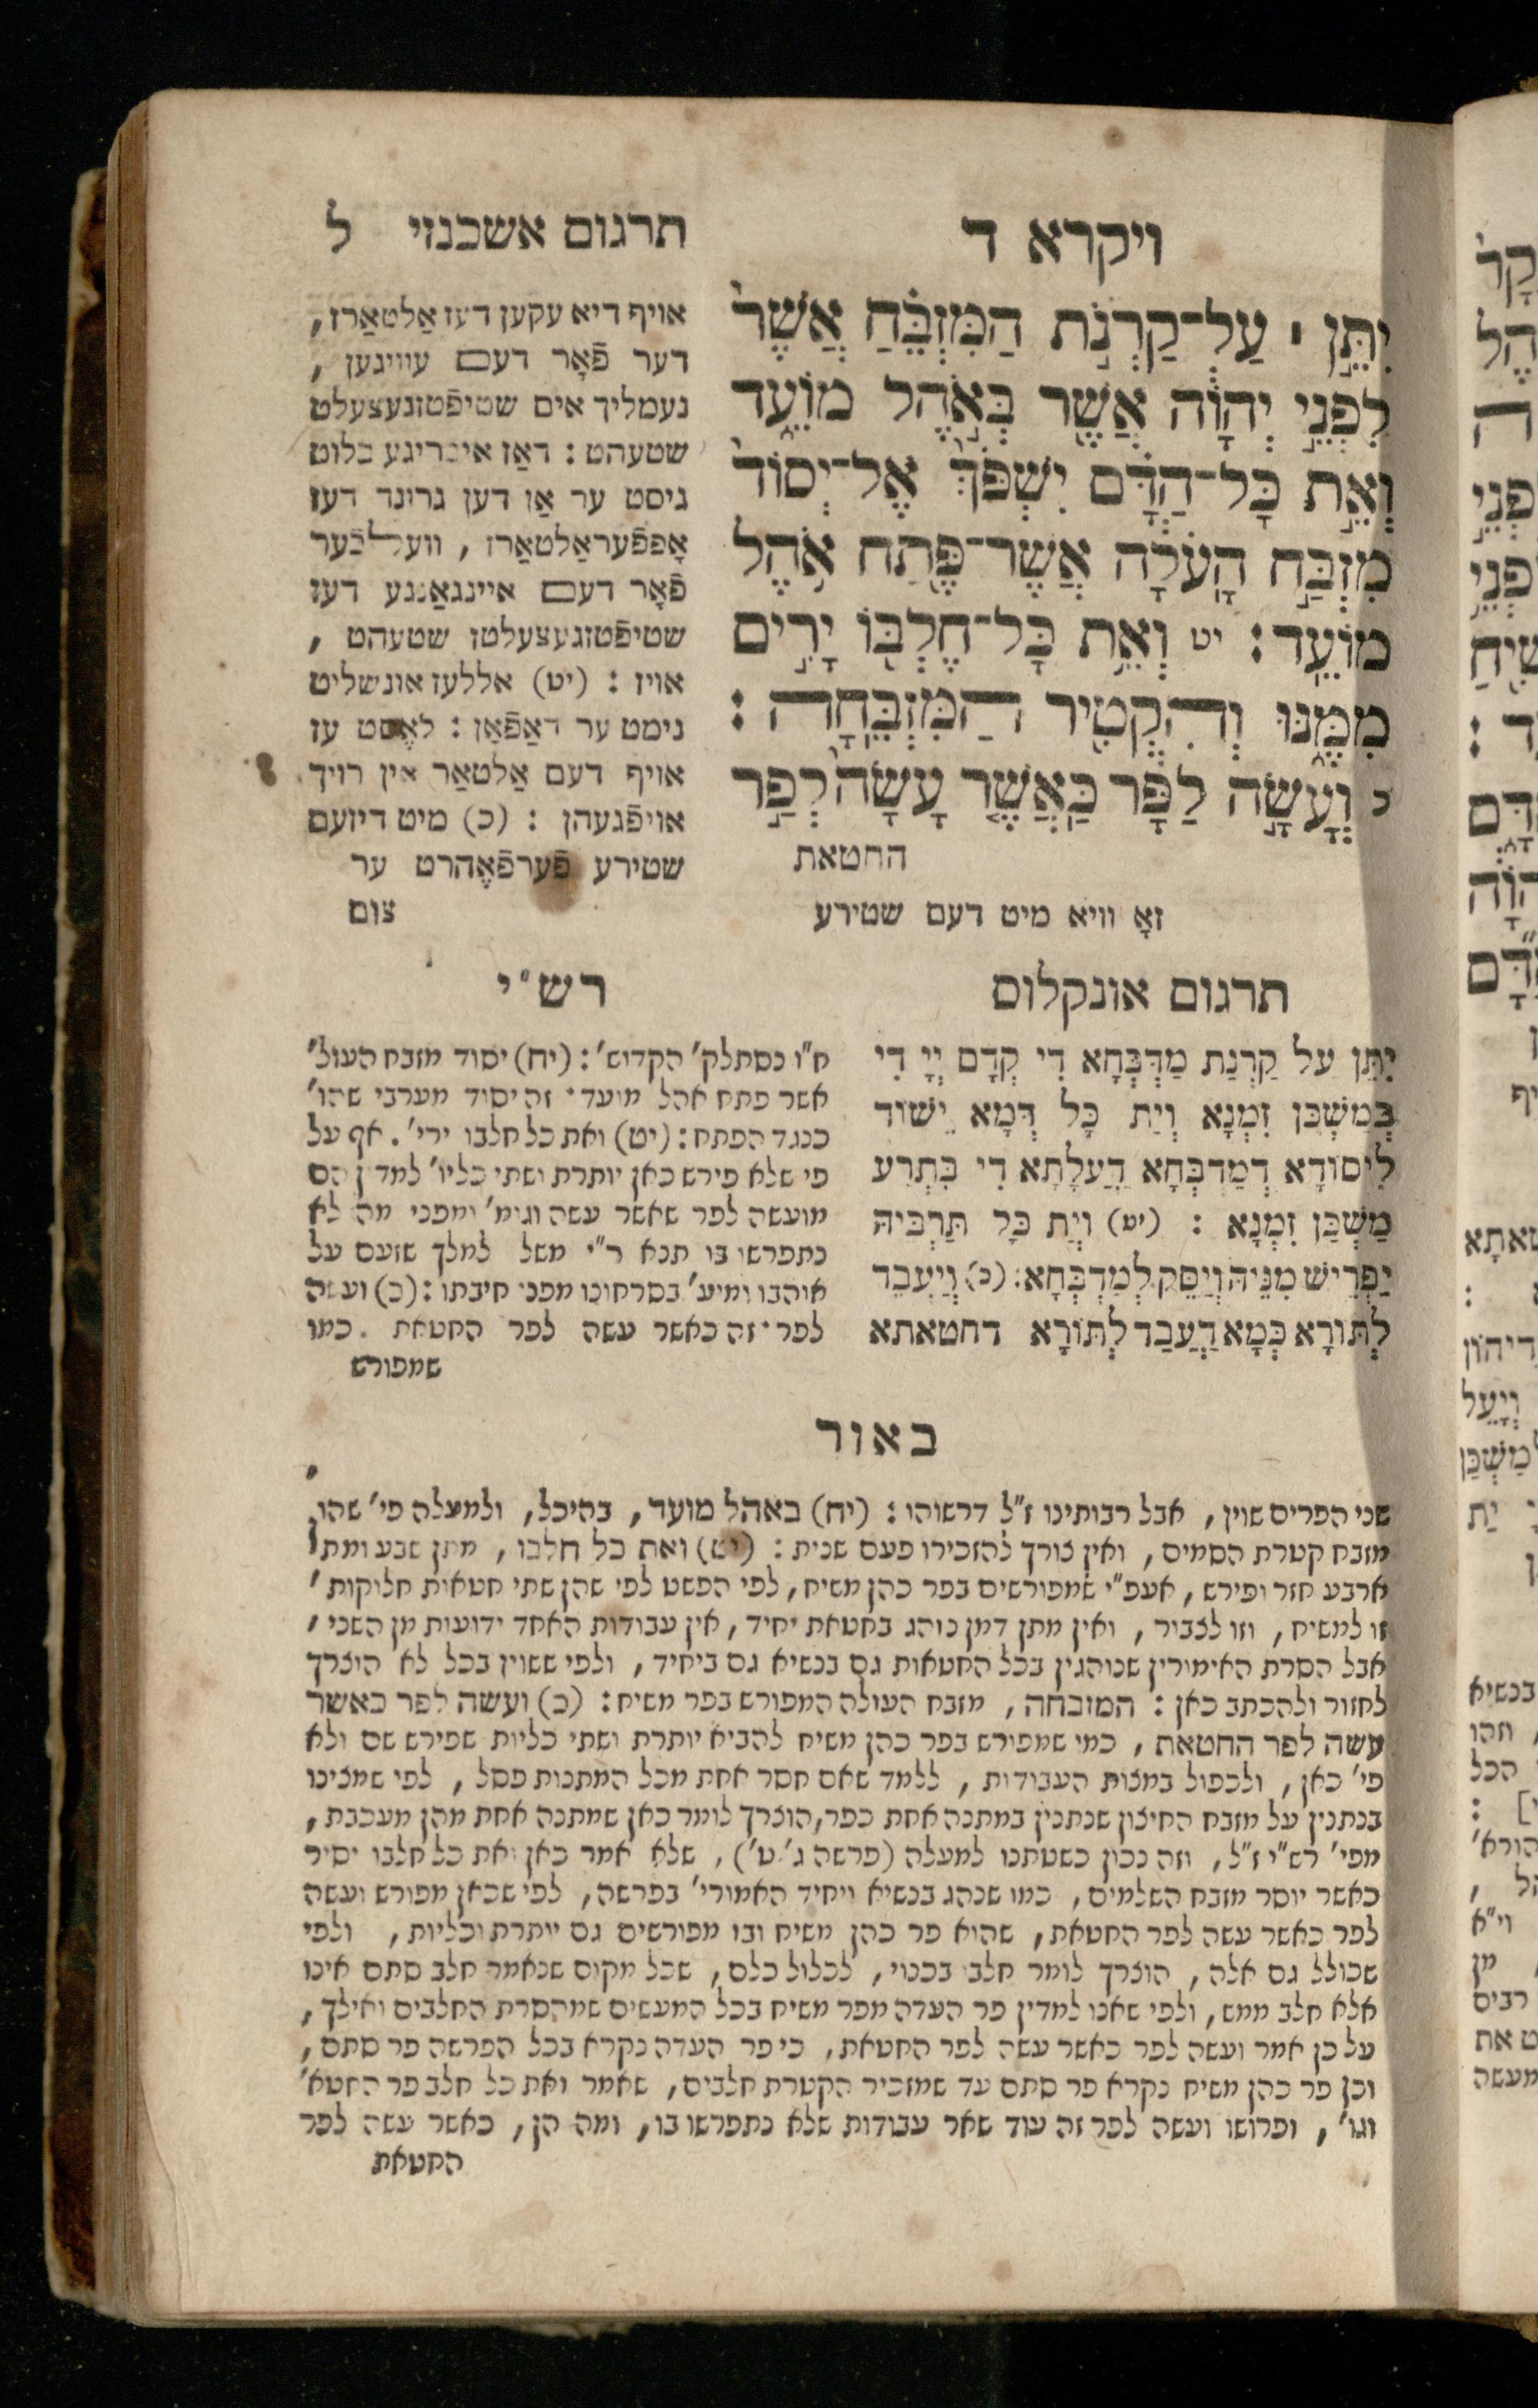 ויקרא ד
תרגום אשכנזי ל
יִתֵּ֣ן ׀ עַל־קַרְנֹ֣ת הַמִּזְבֵּ֗חַ אֲשֶׁר֙
לִפְנֵ֣י יְהֹוָ֔ה אֲשֶׁ֖ר בְּאֹ֣הֶל מוֹעֵ֑ד
וְאֵ֣ת כָּל־הַדָּ֗ם יִשְׁפֹּךְ֙ אֶל־יְסוֹד֙
מִזְבַּ֣ח הָֽעֹלָ֔ה אֲשֶׁר־פֶּ֖תַח אֹ֥הֶל
מוֹעֵֽד׃ יט וְאֵ֥ת כָּל־חֶלְבּ֖וֹ יָרִ֣ים
מִמֶּ֑נּוּ וְהִקְטִ֖יר הַמִּזְבֵּֽחָה׃
כ וְעָשָׂ֣ה לַפָּ֔ר כַּֽאֲשֶׁ֤ר עָשָׂה֙ לְפַ֣ר
החטאת
אויף דיא עקען דעז אַלטאַרז,
דער פֿאָר דעם עוויגען,
נעמליך אים שטיפֿטזגעצעלט
שטעהט: דאַז איבריגע בלוט
גיסט ער אַן דען גרונד דעז
אָפפֿעראַלטאַרז, וועלכֿער
פֿאָר דעם איינגאַנגע דעז
שטיפֿטזגעצעלטז שטעהט,
אויז: (יט) אללעז אונשליט
נימט ער דאַפֿאָן: לאֶסט עז
אויף דעם אַלטאַר אין רויך
אויפֿגעהן: (כ) מיט דיזעם
שטירע פֿערפֿאֶהרט ער
זאָ וויא מיט דעם שטירע צום
תרגום אונקלוס
יִתֵּן עַל קַרְנַת מַדְבְּחָא דִי קְדָם יְיָ דִי
בְּמַשְׁכַּן זִמְנָא וְיַת כָּל דְּמָא יֵשׁוֹד
לִיסוֹדָא דְמַדְבְּחָא דַעֲלָתָא דִי בִּתְרַע
מַשְׁכַּן זִמְנָא: (יט) וְיַת כָּל תַּרְבֵּיהּ
יַפְרֵישׁ מִנֵּיהּ וְיַסֵּק לְמַדְבְּחָא: (כ) וְיַעְבֵּד
לְתוֹרָא כְּמָא דַעֲבַד לְתוֹרָא דחטאתא
רש״י
ח״ו נסתלק׳ הקדוש׳: (יח) יסוד מזבח העול׳
אשר פתח אהל מועד· זה יסוד מערבי שהו׳
כנגד הפתח: (יט) ואת כל חלבו ירי׳. אף על
פי שלא פירש כאן יותרת ושתי כליו׳ למדין הם
מועשה לפר כאשר עשה וגומ׳ ומפני מה לא
נתפרשו בו תנא ר״י משל למלך שזעם על
אוהבו ומיע׳ בסרחונו מפני חיבתו: (כ) ועשה
לפר· זה כאשר עשה לפר החטאת. כמו
שמפורש
באור
שני הפרים שוין, אבל רבותינו ז״ל דרשוהו: (יח) באהל מועד, בהיכל, ולמעלה פי׳ שהו׳
מזבח קטרת הסמים, ואין צורך להזכירו פעם שנית: (יט) ואת כל חלבו, מתן שבע ומתן
ארבע חזר ופירש, אעפ״י שמפורשים בפר כהן משיח, לפי הפשט לפי שהן שתי חטאות חלוקות,
זו למשיח, וזו לצבור, ואין מתן דמן נוהג בחטאת יחיד, אין עבודות האחד ידועות מן השני,
אבל הסרת האימורין שנוהגין בכל החטאות גם בנשיא גם ביחיד, ולפי ששוין בכל לא הוצרך
לחזור ולהכתב כאן: המזבחה, מזבח העולה המפורש בפר משיח: (כ) ועשה לפר כאשר
עשה לפר החטאת, כמי שמפורש בפר כהן משיח להביא יותרת ושתי כליות שפירש שם ולא
פי׳ כאן, ולכפול במצות העבודות, ללמד שאם חסר אחת מכל המתנות פסל, לפי שמצינו
בנתנין על מזבח החיצון שנתנין במתנה אחת כפר, הוצרך לומר כאן שמתנה אחת מהן מעכבת,
מפי׳ רש״י ז״ל, וזה נכון כשטתנו למעלה (פרשה ג׳ ט׳), שלא אמר כאן ואת כל חלבו יסיר
כאשר יוסר מזבח השלמים, כמו שנהג בנשיא ויחיד האמורי׳ בפרשה, לפי שכאן מפורש ועשה
לפר כאשר עשה לפר החטאת, שהוא פר כהן משיח ובו מפורשים גם יותרת וכליות, ולפי
שכולל גם אלה, הוצרך לומר חלבו בכנוי, לכלול כלם, שכל מקום שנאמר חלב סתם אינו
אלא חלב ממש, ולפי שאנו למדין פר העדה מפר משיח בכל המעשים שמהסרת החלבים ואילך,
על כן אמר ועשה לפר כאשר עשה לפר החטאת, כי פר העדה נקרא בכל הפרשה פר סתם,
וכן פר כהן משיח נקרא פר סתם עד שמזכיר הקטרת חלבים, שאמר ואת כל חלב פר החטא׳
וגו׳, ופרושו ועשה לפר זה עוד שאר עבודות שלא נתפרשו בו, ומה הן, כאשר עשה לפר
החטאת